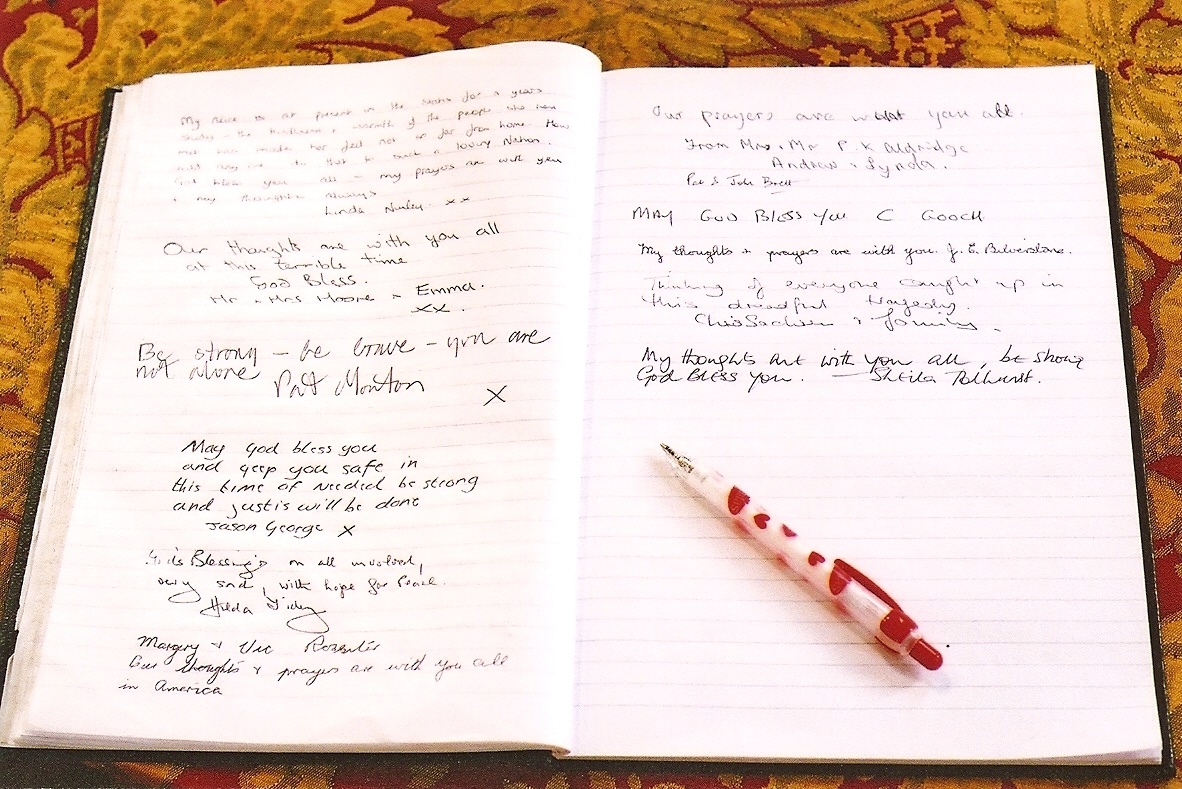 My niece is at present in the States for 2 years
study - the kindness & warmth of the people who have
met has made her feel not so far from home. How
could any one do that to such a loving Nation.
God bless you all - my prayers are with you
& my thoughts always
Linda xx
Our thoughts are with you all
at this terrible time
God Bless.
Mr & Mrs Moore & Emma.
xx.
Be strong - be brave - you are
not alone
Pat Monton X
May God bless you
and geep you safe in
this time of needed be strong
and justis will be done
Jason George X
God's Blessings on all involved,
very sad, with hope for Peace.
Hilda Tidey
Margery & Vic
Our thoughts & prayers are with you all
in America
Our prayers are with you all.
From Mrs & Mr P. K Aldridge
Andrew & Lynda.
Pat & John Brett
MAY GOD BLESS YOU C GOOCH
My thoughts & prayers are with you. J. E.
Thinking of everyone caught up in
this dreadful tragedy.
Chris & family.
My thoughts are with you all, be strong
God BLESS YOU. - Sheila Tolhurst.